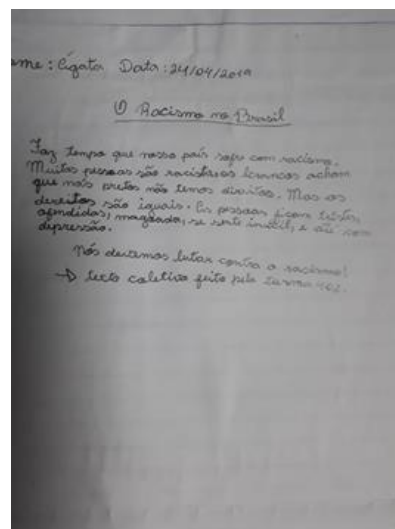 ome: Ágata Data: 24/04/2019
O Racismo no Brasil
Faz tempo que nosso país sofre com racismo.
Muitas pessoas são racistas os brancos acham
que nois pretos não temos direitos. Mas os
direitos são iguais. As pessoas ficam tristes,
ofendidas, magoada, se sente inútil, e até com
depressão.
Nós devemos lutar contra o racismo!
→ texto coletivo feito pela turma 402.